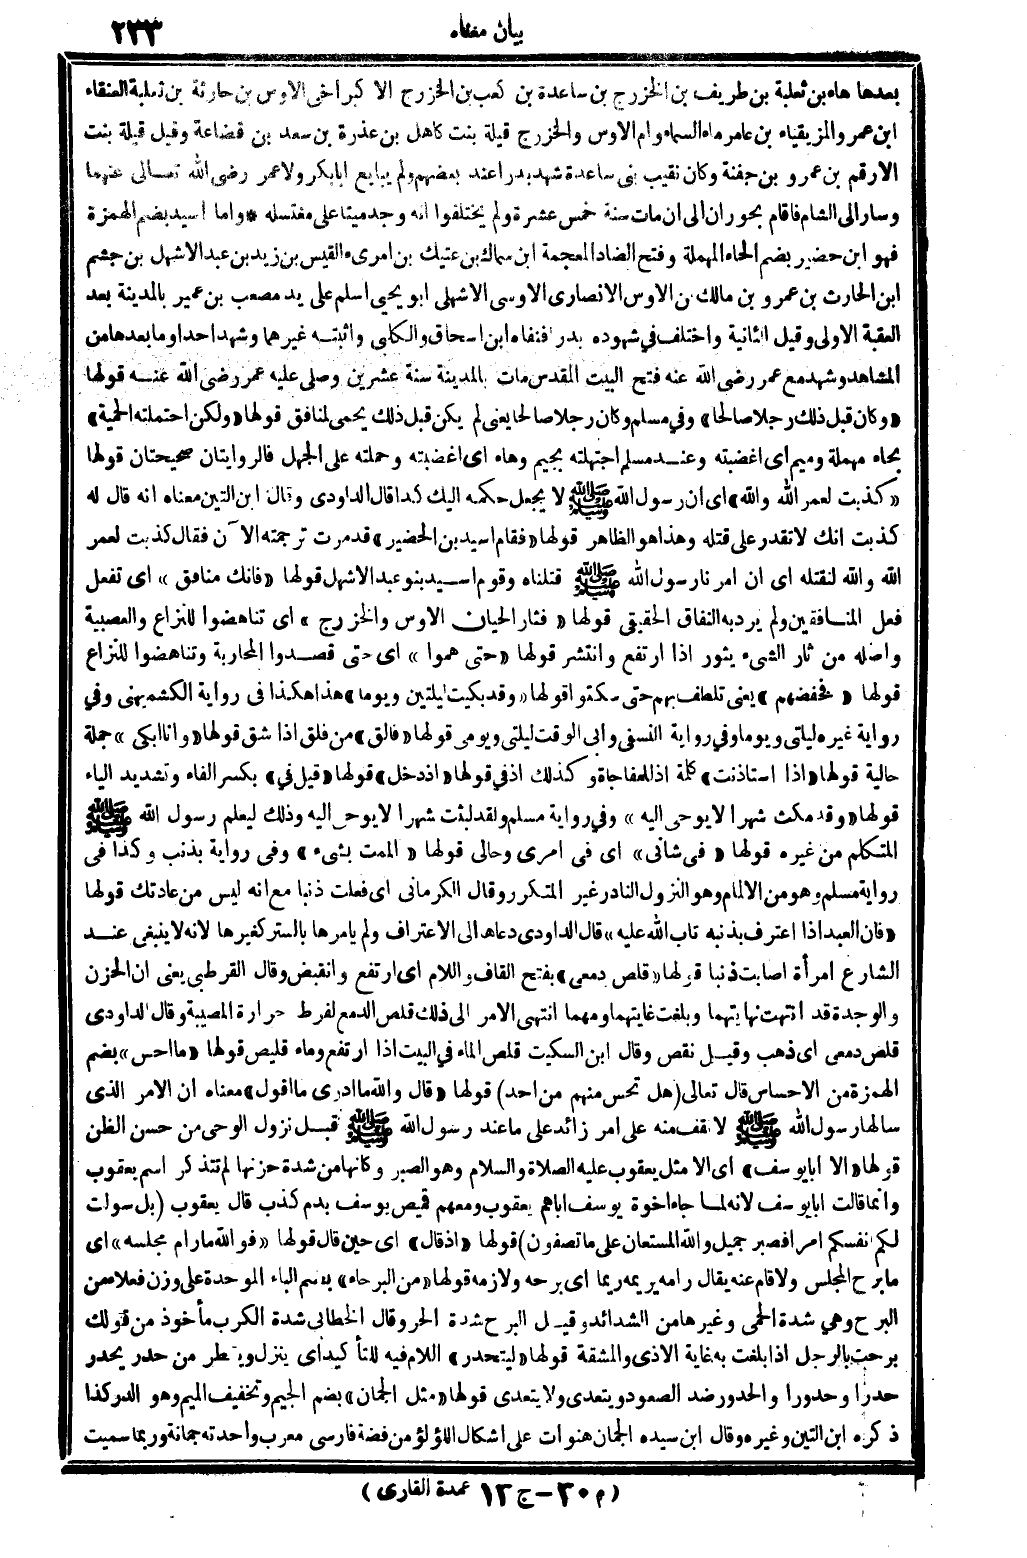 بيان معناه
٢٣٣
بعدها هاء بن ثعلبة بن طريف بن الخزرج بن ساعدة بن كعب بن الخزرج الاكبر اخى الاوس بن حارثة بن ثعلبة العنقاء
ابن عمرو المزيقياء بن عامر ماء السماء وام الاوس والخزرج قيلة بنت كاهل بن عذرة بن سعد بن قضاعة وقيل قيلة بنت
الارقم بن عمرو بن جفنة وكان نقيب بنى ساعدة شهد بدرا عند بعضهم ولم يبايع ابا بكر ولا عمر رضى الله تعالى عنهما
وسار الى الشام فاقام بحوران الى ان مات سنة خمس عشرة ولم يختلفوا انه وجد ميتا على مغتسله * واما اسيد بضم الهمزة
فهو ابن حضير بضم الحاء المهملة وفتح الضاد المعجمة ابن سماك بن عتيك بن امرىء القيس بن زيد بن عبد الاشهل بن جشم
ابن الحارث بن عمرو بن مالك بن الاوس الانصارى الاوسى الاشهلى ابو يحيى اسلم على يد مصعب بن عمير بالمدينة بعد
العقبة الاولى وقيل الثانية واختلف في شهوده بدرا فنفاه ابن اسحاق والكلبى واثبته غيرهما وشهد احدا وما بعدها من
المشاهد وشهد مع عمر رضى الله عنه فتح البيت المقدس مات بالمدينة سنة عشرين وصلى عليه عمر رضى الله عنه قولها
«وكان قبل ذلك رجلا صالحا» وفي مسلم وكان رجلا صالحا يعنى لم يكن قبل ذلك يحمى لمنافق قولها «ولكن احتملته الحمية»
بحاء مهملة وميم اى اغضبته وعند مسلم اجتهلته بجيم وهاء اى اغضبته وحملته على الجهل فالروايتان صحيحتان قولها
«كذبت لعمر الله والله» اى ان رسول الله ﷺ لا يجعل حكمه اليك كذا قال الداودى وقال ابن التين معناه انه قال له
كذبت انك لا تقدر على قتله وهذا هو الظاهر قولها «فقام اسيد بن الحضير» قد مرت ترجمته الآن فقال كذبت لعمر
الله والله لنقتله اى ان امرنا رسول الله ﷺ قتلناه وقوم اسيد بنو عبد الاشهل قولها «فانك منافق» اى تفعل
فعل المنافقين ولم يرد به النفاق الحقيقى قولها «فثار الحيان الاوس والخزرج» اى تناهضوا للنزاع والعصبية
واصله من ثار الشىء يثور اذا ارتفع وانتشر قولها «حتى هموا» اى حتى قصدوا المحاربة وتناهضوا للنزاع
قولها «فخفضهم» يعنى تلطف بهم حتى سكتوا قولها «وقد بكيت ليلتين ويوما» هذا هكذا فى رواية الكشميهنى وفي
رواية غيره ليلتى ويوما وفي رواية النسفى وابى الوقت ليلتى ويومى قولها «فالق» من فلق اذا شق قولها «وانا ابكى» جملة
حالية قولها «اذا استاذنت» كلمة اذ للمفاجاة وكذلك اذ في قولها «اذ دخل» قولها «قيل في» بكسر الفاء وتشديد الياء
قولها «وقد مكث شهرا لا يوحى اليه» وفي رواية مسلم ولقد لبثت شهرا لا يوحى اليه وذلك ليعلم رسول الله ﷺ
المتكلم من غيره قولها «فى شانى» اى فى امرى وحالى قولها «الممت بشىء» وفى رواية بذنب وكذا فى
رواية مسلم وهو من الالمام وهو النزول النادر غير المتكرر وقال الكرمانى اى فعلت ذنبا مع انه ليس من عادتك قولها
«فان العبد اذا اعترف بذنبه تاب الله عليه» قال الداودى دعاها الى الاعتراف ولم يامرها بالستر كغيرها لانه لا ينبغى عند
الشارع امرأة اصابت ذنبا قولها «قلص دمعى» بفتح القاف واللام اى ارتفع وانقبض وقال القرطبى يعنى ان الحزن
والوجدة قد انتهت نهايتهما وبلغت غايتهما ومهما انتهى الامر الى ذلك قلص الدمع لفرط حرارة المصيبة وقال الداودى
قلص دمعى اى ذهب وقيل نقص وقال ابن السكيت قلص الماء في البيت اذا ارتفع وماء قليص قولها «ما احس» بضم
الهمزة من الاحساس قال تعالى (هل تحس منهم من احد) قولها «قال والله ما ادرى ما اقول» معناه ان الامر الذى
سالها رسول الله ﷺ لا نقف منه على امر زائد على ما عند رسول الله ﷺ قبل نزول الوحى من حسن الظن
قولها «الا ابا يوسف» اى الا مثل يعقوب عليه الصلاة والسلام وهو الصبر وكانها من شدة حزنها لم تتذكر اسم يعقوب
وانما قالت ابا يوسف لانه لما جاء اخوة يوسف اباهم يعقوب ومعهم قميص يوسف بدم كذب قال يعقوب (بل سولت
لكم انفسكم امرا فصبر جميل والله المستعان على ما تصفون) قولها «اذ قال» اى حين قال قولها «فو الله ما رام مجلسه» اى
ما برح المجلس ولا قام عنه يقال رامه يريمه ريما اى برحه ولازمه قولها «من البرحاء» بضم الباء الموحدة على وزن فعلاء من
البرح وهي شدة الحمى وغيرها من الشدائد وقيل البرح شدة الحر وقال الخطابى شدة الكرب مأخوذ من قولك
برحت بالرجل اذا بلغت به غاية الاذى والمشقة قولها «ليتحدر» اللام فيه للتأكيد اى ينزل ويقطر من حدر يحدر
حدرا وحدورا والحدور ضد الصعود ويتعدى ولا يتعدى قولها «مثل الجمان» بضم الجيم وتخفيف الميم وهو الدر كذا
ذكره ابن التين وغيره وقال ابن سيده الجمان هنوات على اشكال اللؤلؤ من فضة فارسى معرب واحدته جمانة وربما سميت
(م ٣٠ - ج ١٣ عمدة القارى)